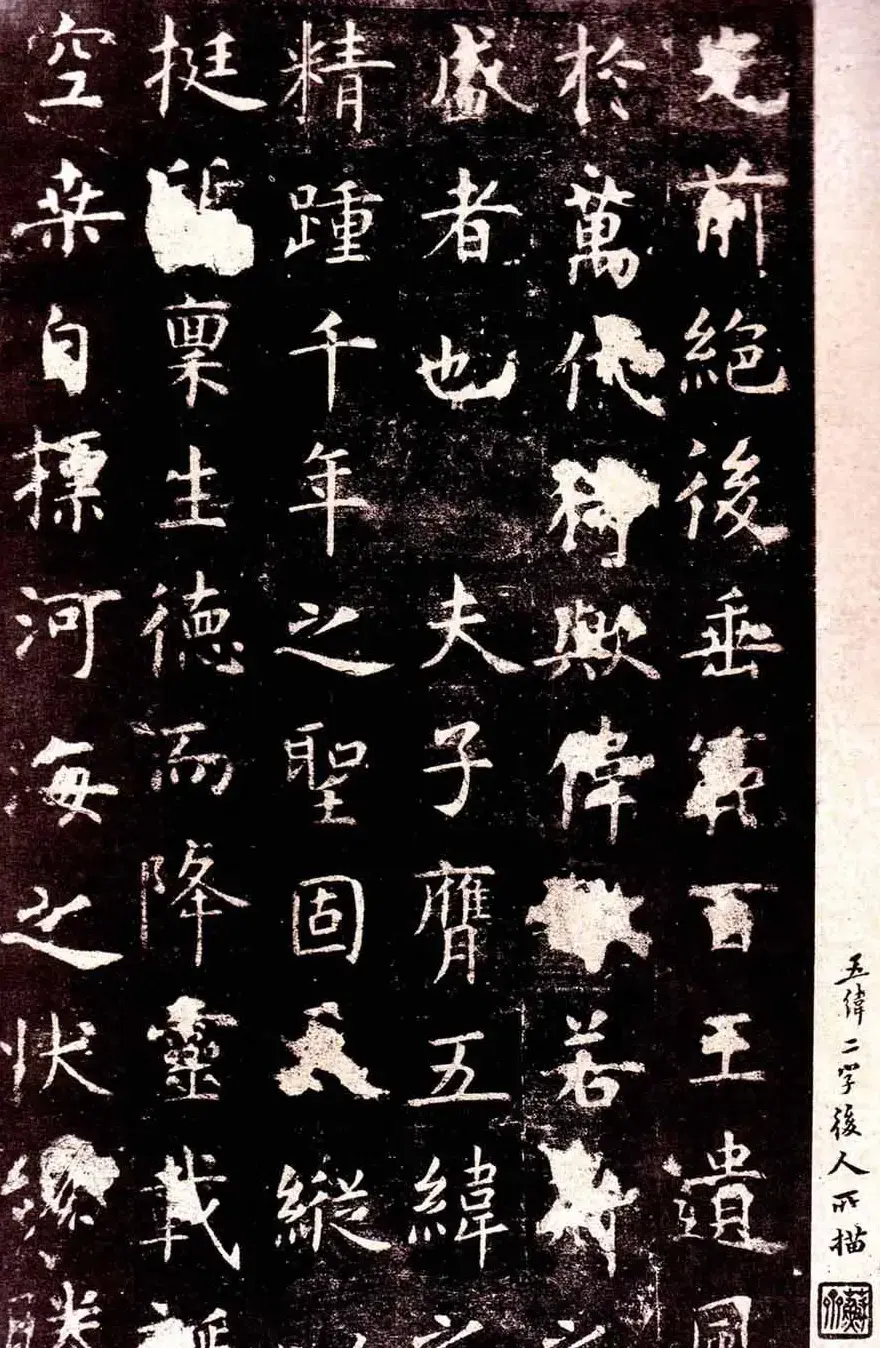 光前絕後垂範百王遺風
於萬代猗歟偉若斯之
盛者也 夫子膺五緯之
精踵千年之聖固天縱以
挺質稟生德而降靈載誕
空桑自標河海之狀纔勝
五緯二字後人所描